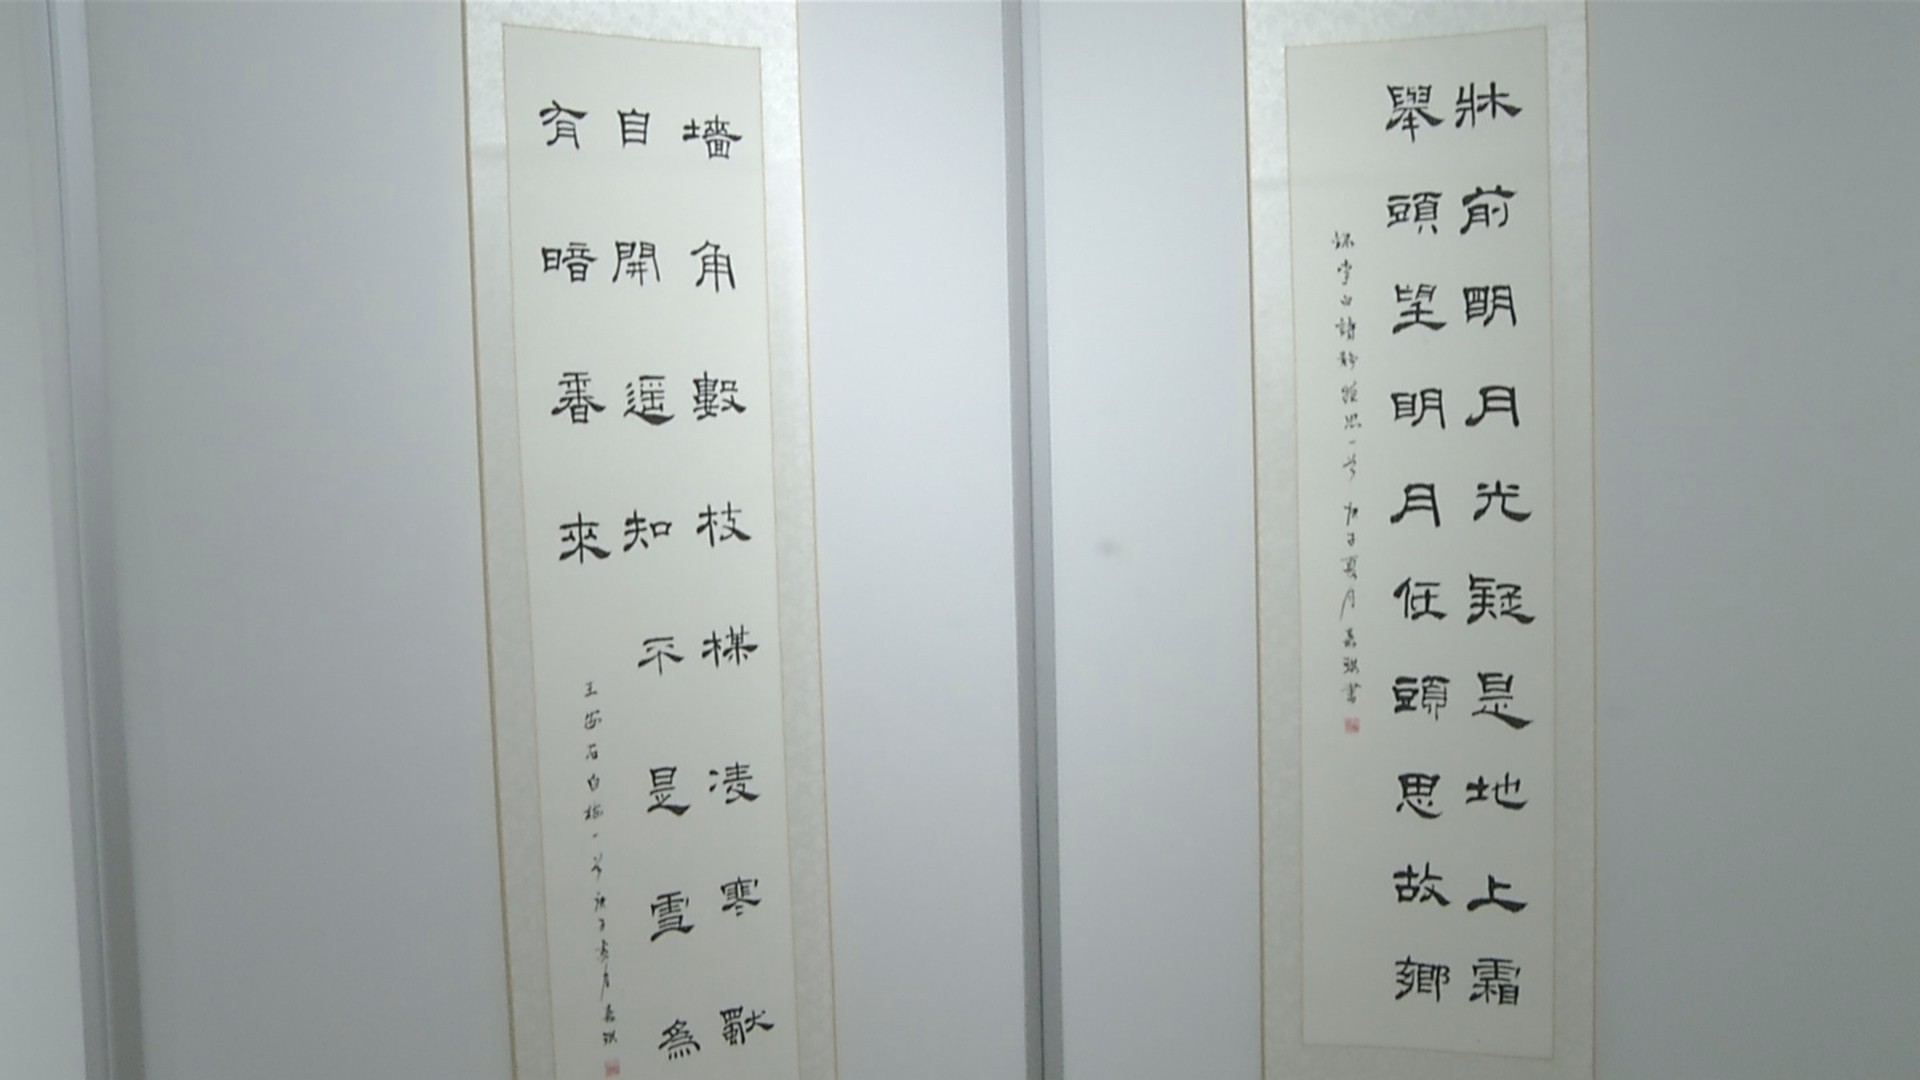 牀前明月光疑是地上霜
舉頭望明月低頭思故鄉
李白詩靜夜思一首 庚子夏月 嘉琪書
墻角數枝楳凌寒獨
自開遥知不是雪為
有暗香來
王安石白梅一首庚子夏月嘉琪